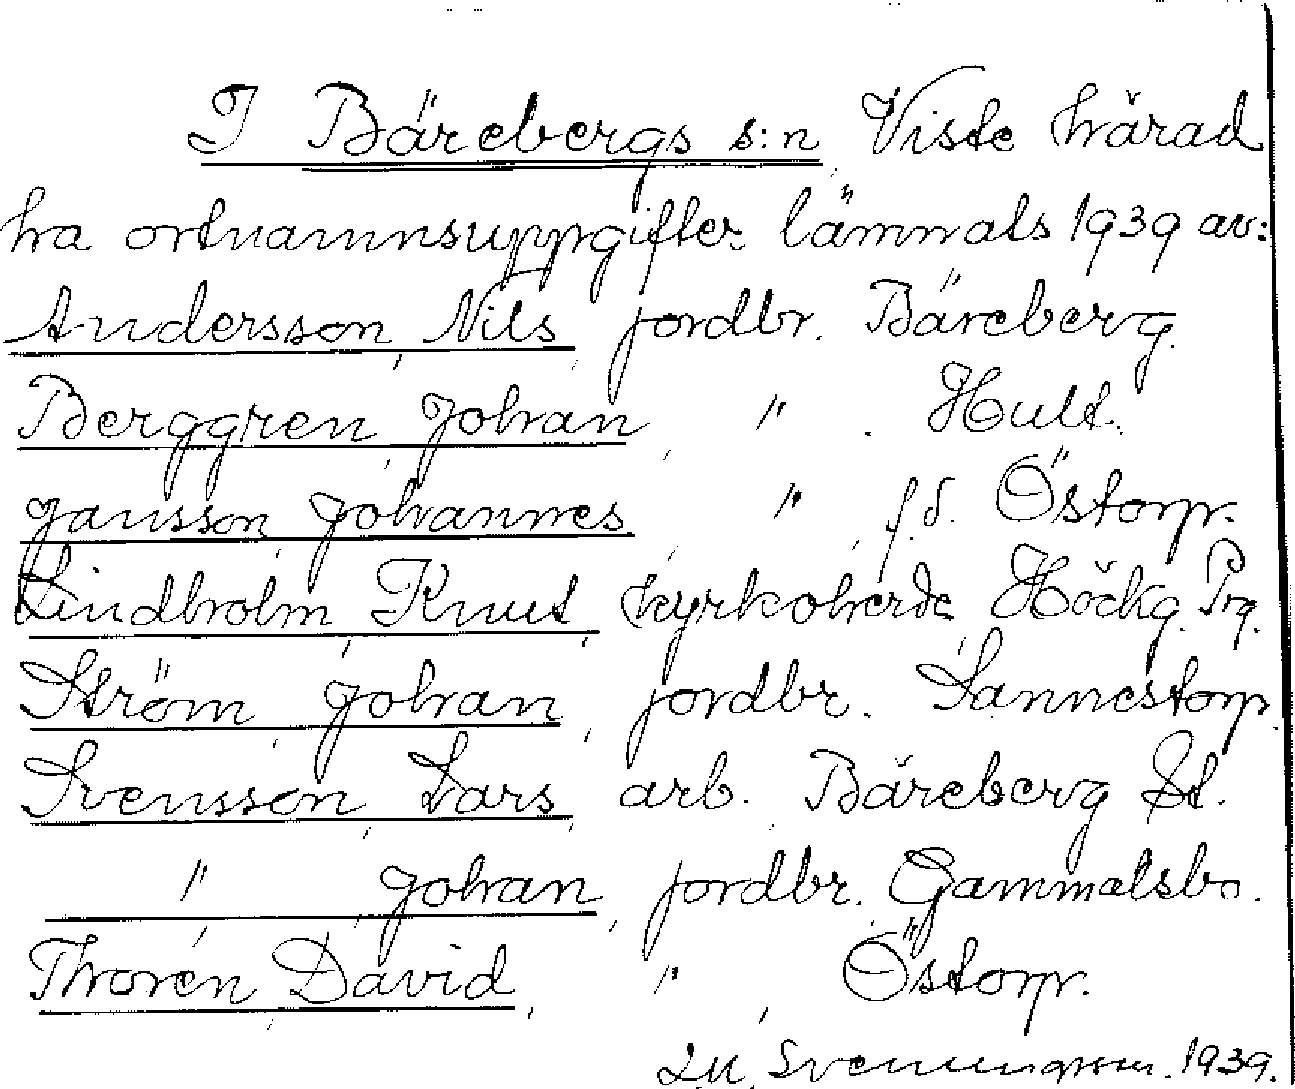 I Bärebergs s:n Viste härad
ha ortnamnsuppgifter lämnats 1939 av:
Andersson, Nils, jordbr. Bäreberg.
Berggren, Johan, " . Hult.
Jansson, Johannes, " , f.d. Östorp.
Lindholm, Knut, kyrkoherde, Höckg. Prg.
Ström, Johan, jordbr. Sannestorp.
Svensson, Lars, arb. Bäreberg St.
" , Johan, jordbr. Gammalsbo.
Thorén, David, " , Östorp.
Svenungsson. 1939.